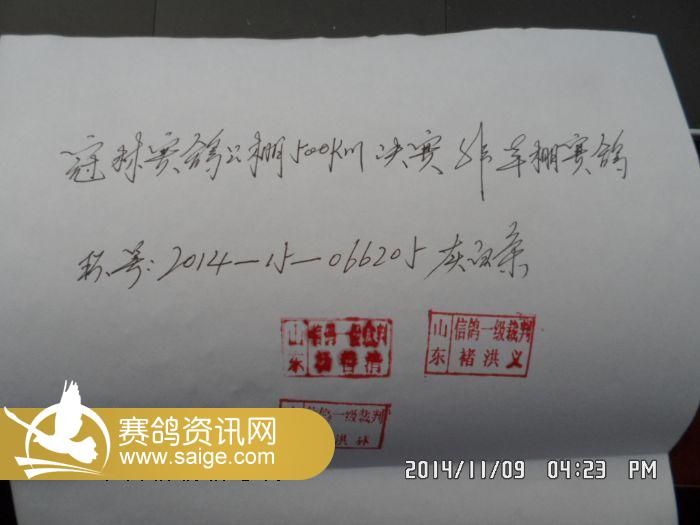 冠球赛鸽公棚500Km决赛 车棚赛鸽
环号:2014-15-066205 灰白条
山东 信鸽一级裁判
山东 信鸽一级裁判 褚洪义
信鸽一级裁判
赛鸽资讯网
www.saige.com
2014/11/09 04:23 PM